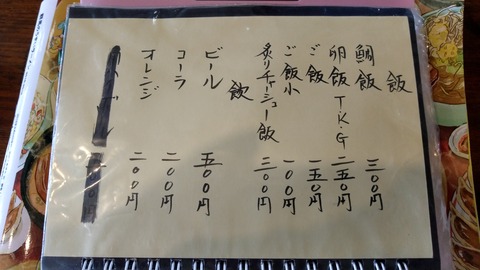 飯
鯛飯 三〇〇円
卵飯 T.K.G 二五〇円
ご飯 一五〇円
ご飯小 一〇〇円
炙りチャーシュー飯 三〇〇円
飲
ビール 五〇〇円
コーラ 二〇〇円
オレンジ 二〇〇円